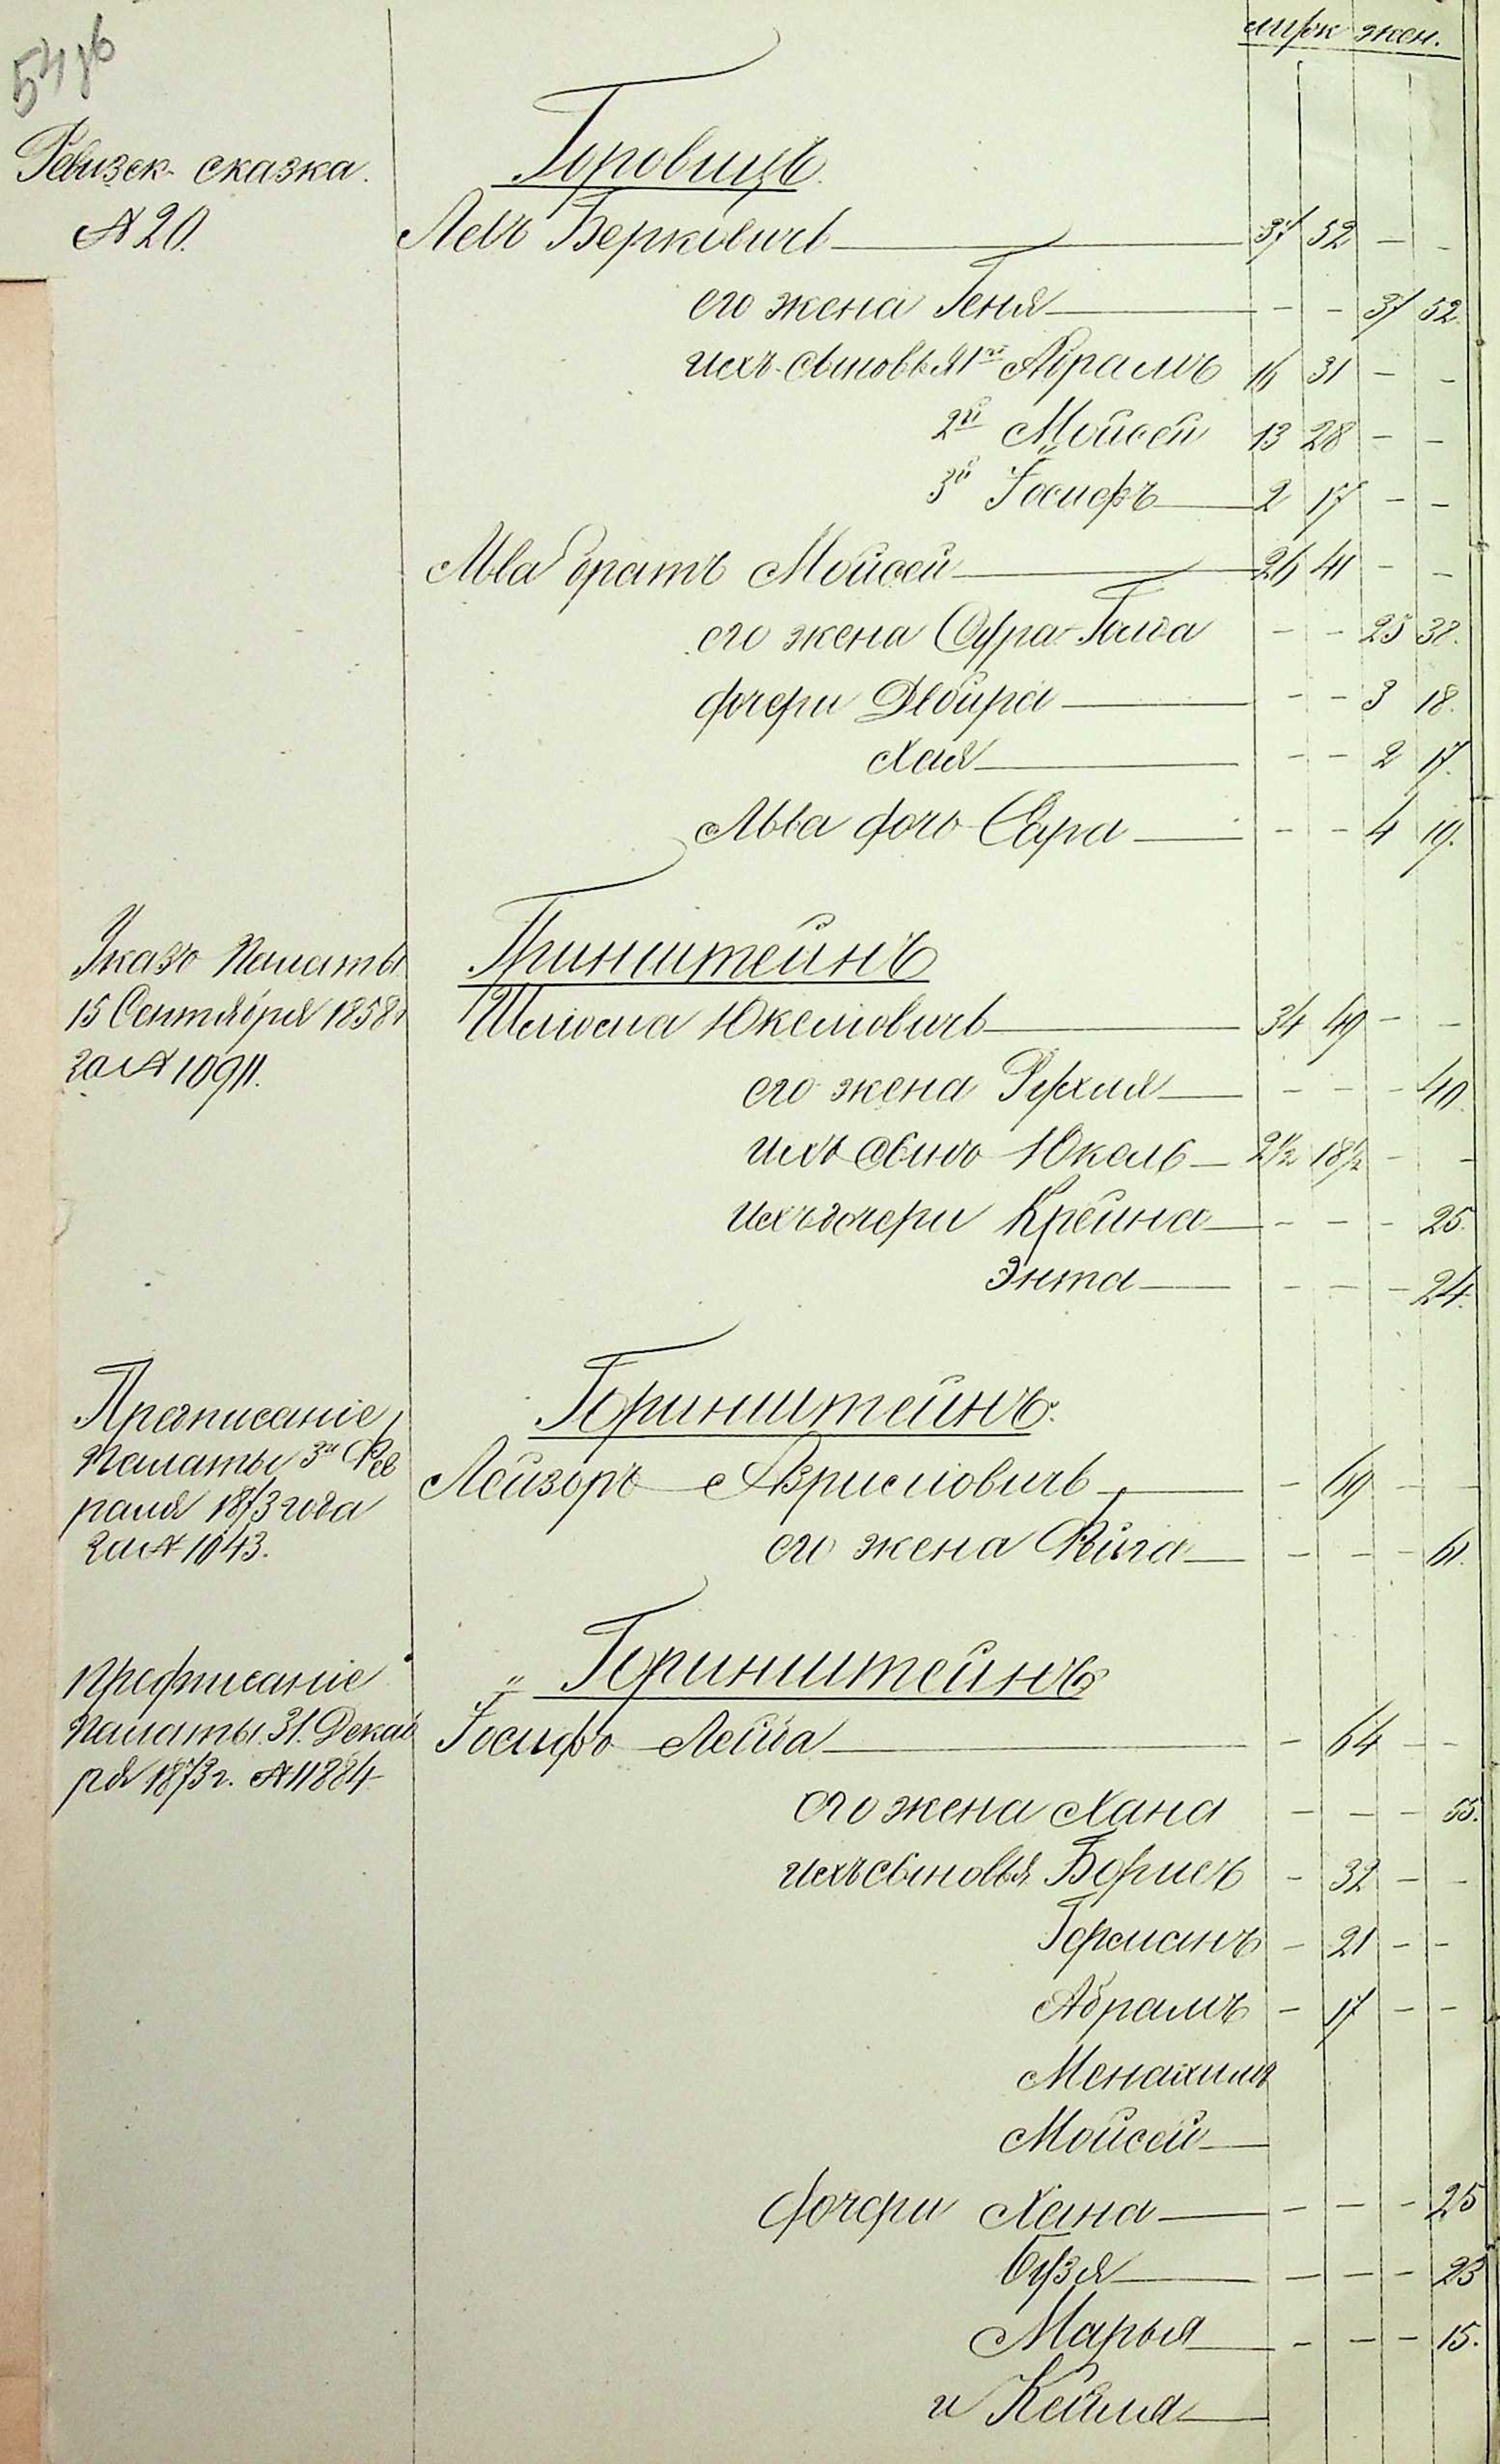 мужс жен.
54 об
Ревизск. сказка.
№ 20.
Горовицъ.
Левъ Берковичъ 37 52 - -
его жена Геня - - 37 52.
ихъ сыновья 1й Абрамъ 16 31 - -
2й Мойсей 13 28 - -
3й Іосифъ 2 17 - -
Льва братъ Мойсей 26 41 - -
его жена Сура - - 25 38.
дочери Двойра - - 3 18.
Хая - - 2 17.
Льва дочь Сара - - 4 19.
Указъ Палаты
15 Сентября 1858 г
за № 10911.
Гринштейнъ
Шліома Юкеліовичъ 34 49 - -
его жена Рухля - - - 40.
ихъ сынъ Юкель 2 1/2 18 1/2 - -
ихъ дочери Крейна - - - 25.
Энта - - - 24.
Предписаніе
Палаты 3й Фев
раля 1873 года
за № 1043.
Геринштейнъ.
Лейзоръ - 69 - -
его жена - - - 61.
Предписаніе
Палаты 31. Декаб
ря 1873 г. № 11884
Геринштейнъ
Іосифъ Лейба - 64 - -
его жена Хана - - - 55.
ихъ сыновья Борисъ - 32 - -
Германъ - 21 - -
Абрамъ - 17 - -
Менахимъ
Мойсей
дочери Хана - - - 25
Бузя - - - 23
Марья - - - 15.
и Кейля